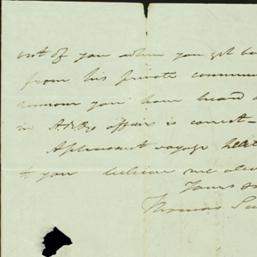 out of you when you get
from his private
rumour you have heard
in affair is correct—
A pleasant voyage
to you believe me
Yours
Thomas